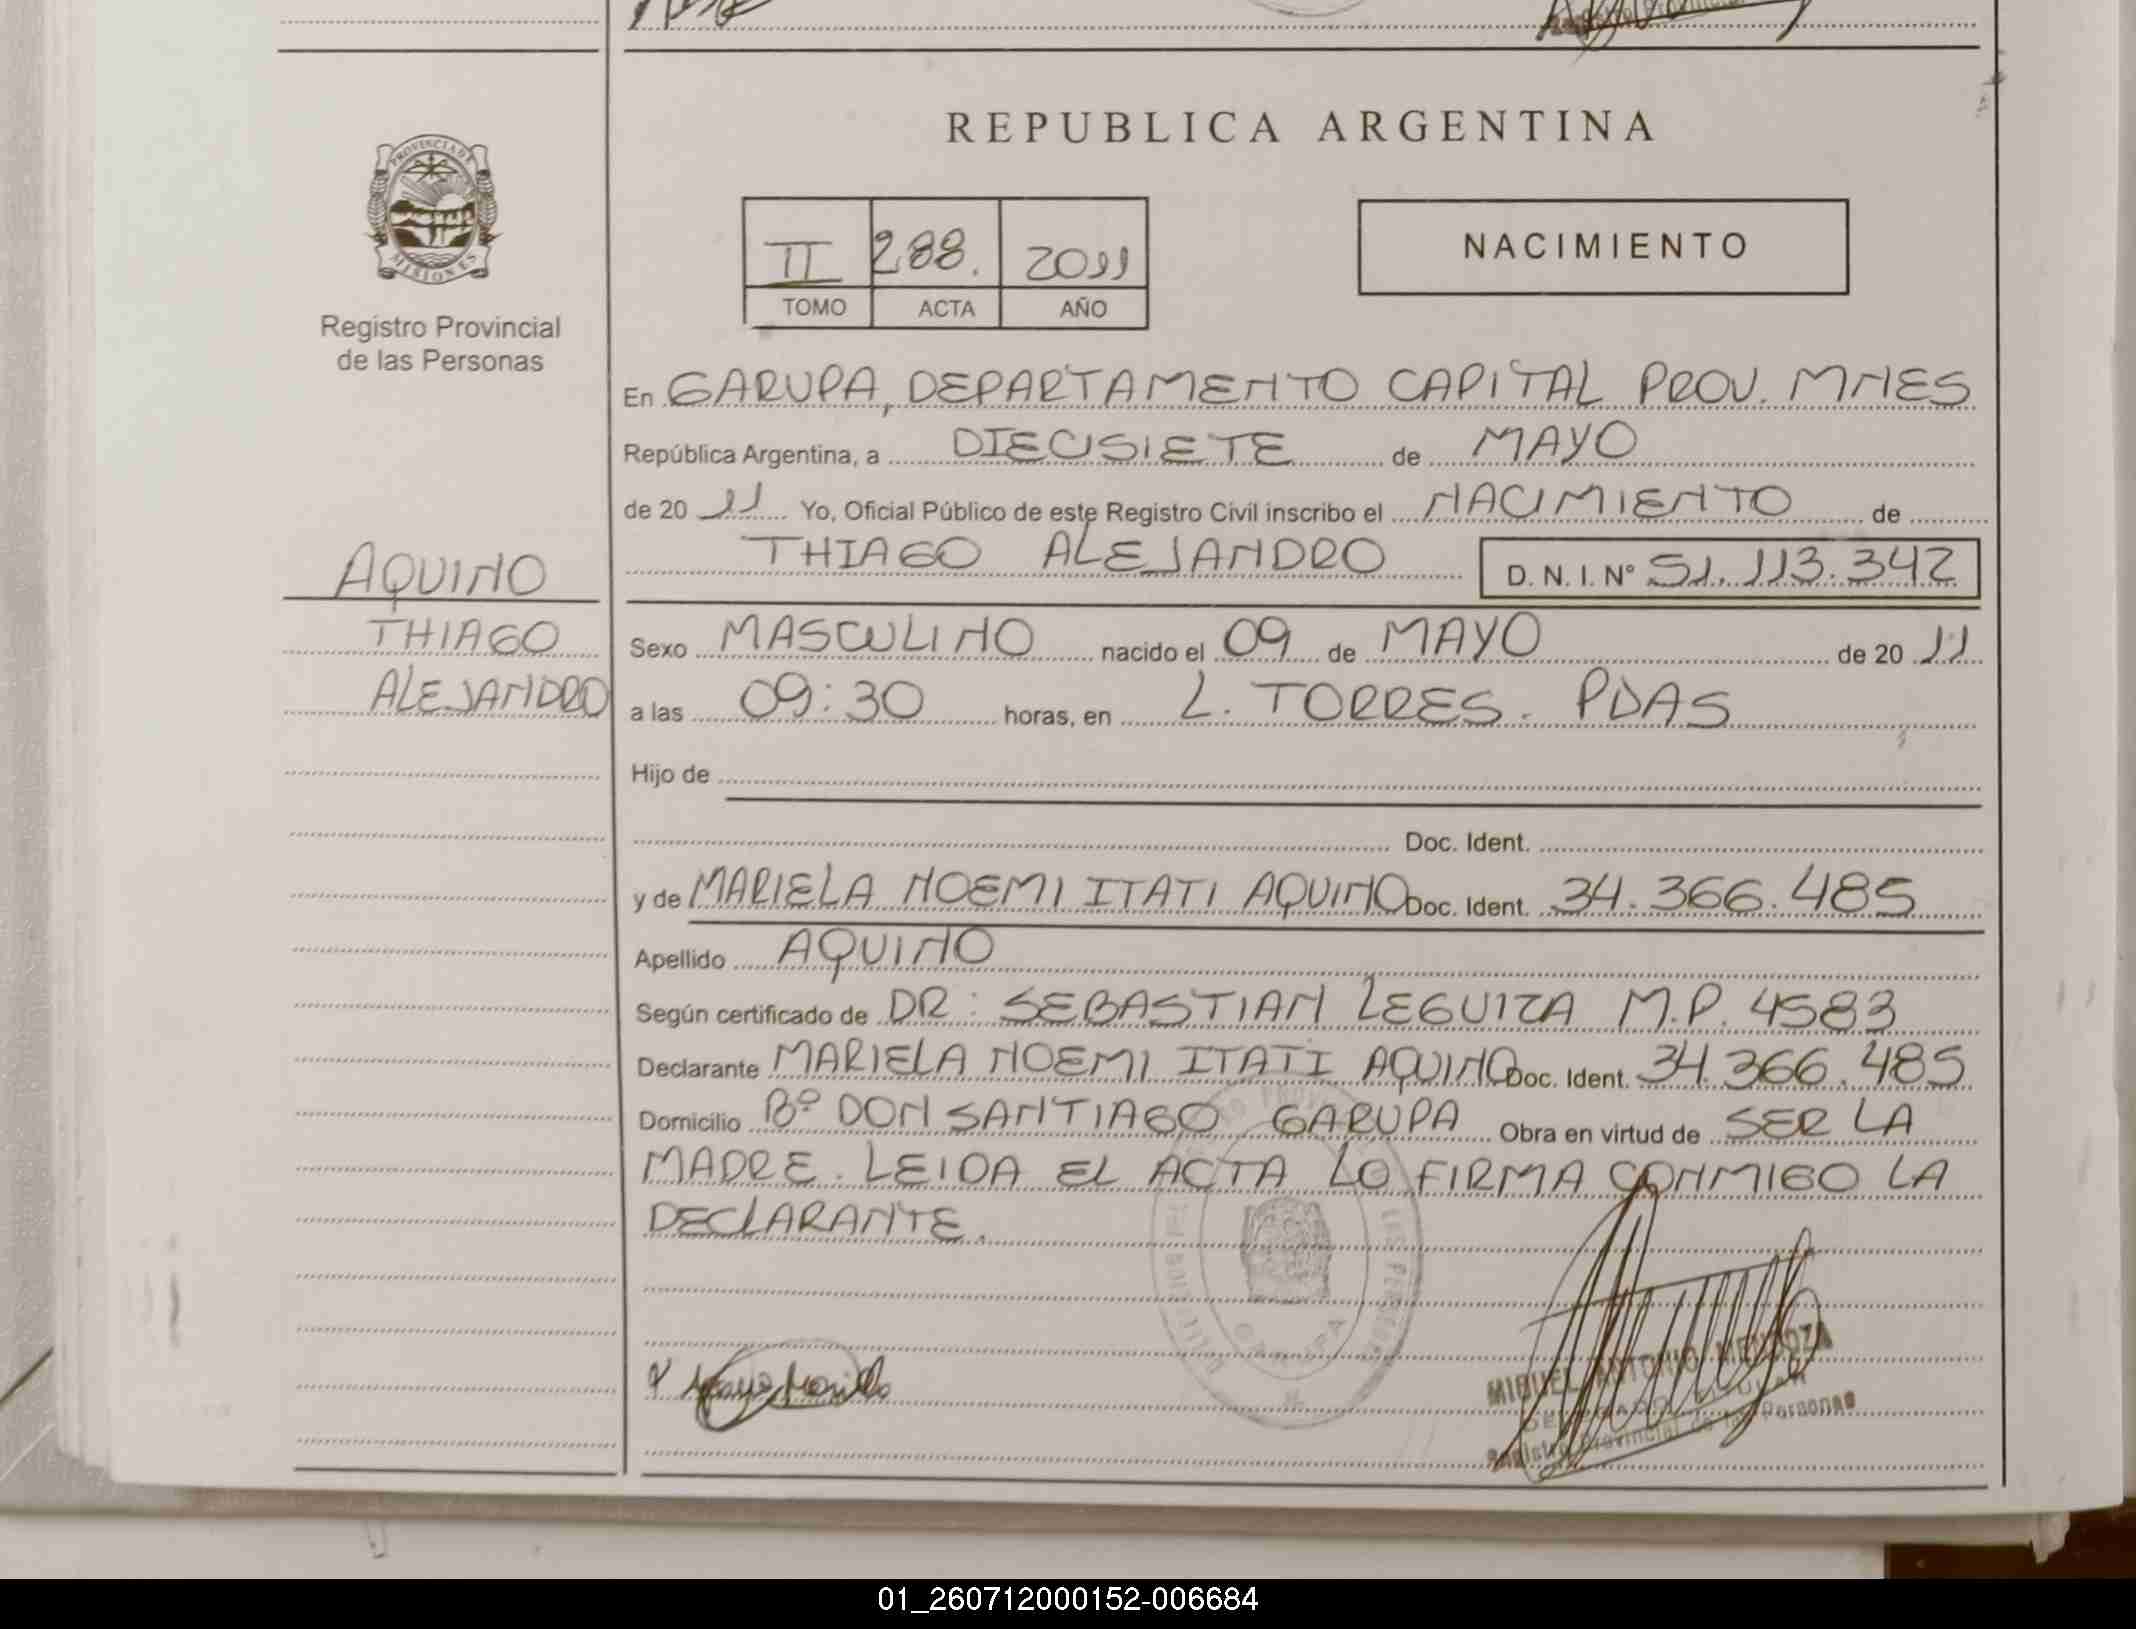 REPUBLICA ARGENTINA
PROVINCIA DE
MISIONES
Registro Provincial
de las Personas
II 288. 2011
TOMO ACTA AÑO
NACIMIENTO
En GARUPA, DEPARTAMENTO CAPITAL PROV. MNES
República Argentina, a DIECISIETE de MAYO
de 20 11 Yo, Oficial Público de este Registro Civil inscribo el NACIMIENTO de
THIAGO ALEJANDRO D.N.I. Nº 51.113.342
AQUINO
THIAGO
ALEJANDRO
Sexo MASCULINO nacido el 09 de MAYO de 20 11
a las 09:30 horas, en L. TORRES. PDAS
Hijo de
Doc. Ident.
y de MARIELA NOEMI ITATI AQUINO Doc. Ident. 34.366.485
Apellido AQUINO
Según certificado de DR: SEBASTIAN LEGUIZA M.P. 4583
Declarante MARIELA NOEMI ITATI AQUINO Doc. Ident. 34.366.485
Domicilio Bº DON SANTIAGO GARUPA Obra en virtud de SER LA
MADRE. LEIDA EL ACTA LO FIRMA CONMIGO LA
DECLARANTE.
GARUPA
MIGUEL ANTONIO MENDOZA
DELEGADO TITULAR
Registro Provincial de las Personas
01_260712000152-006684